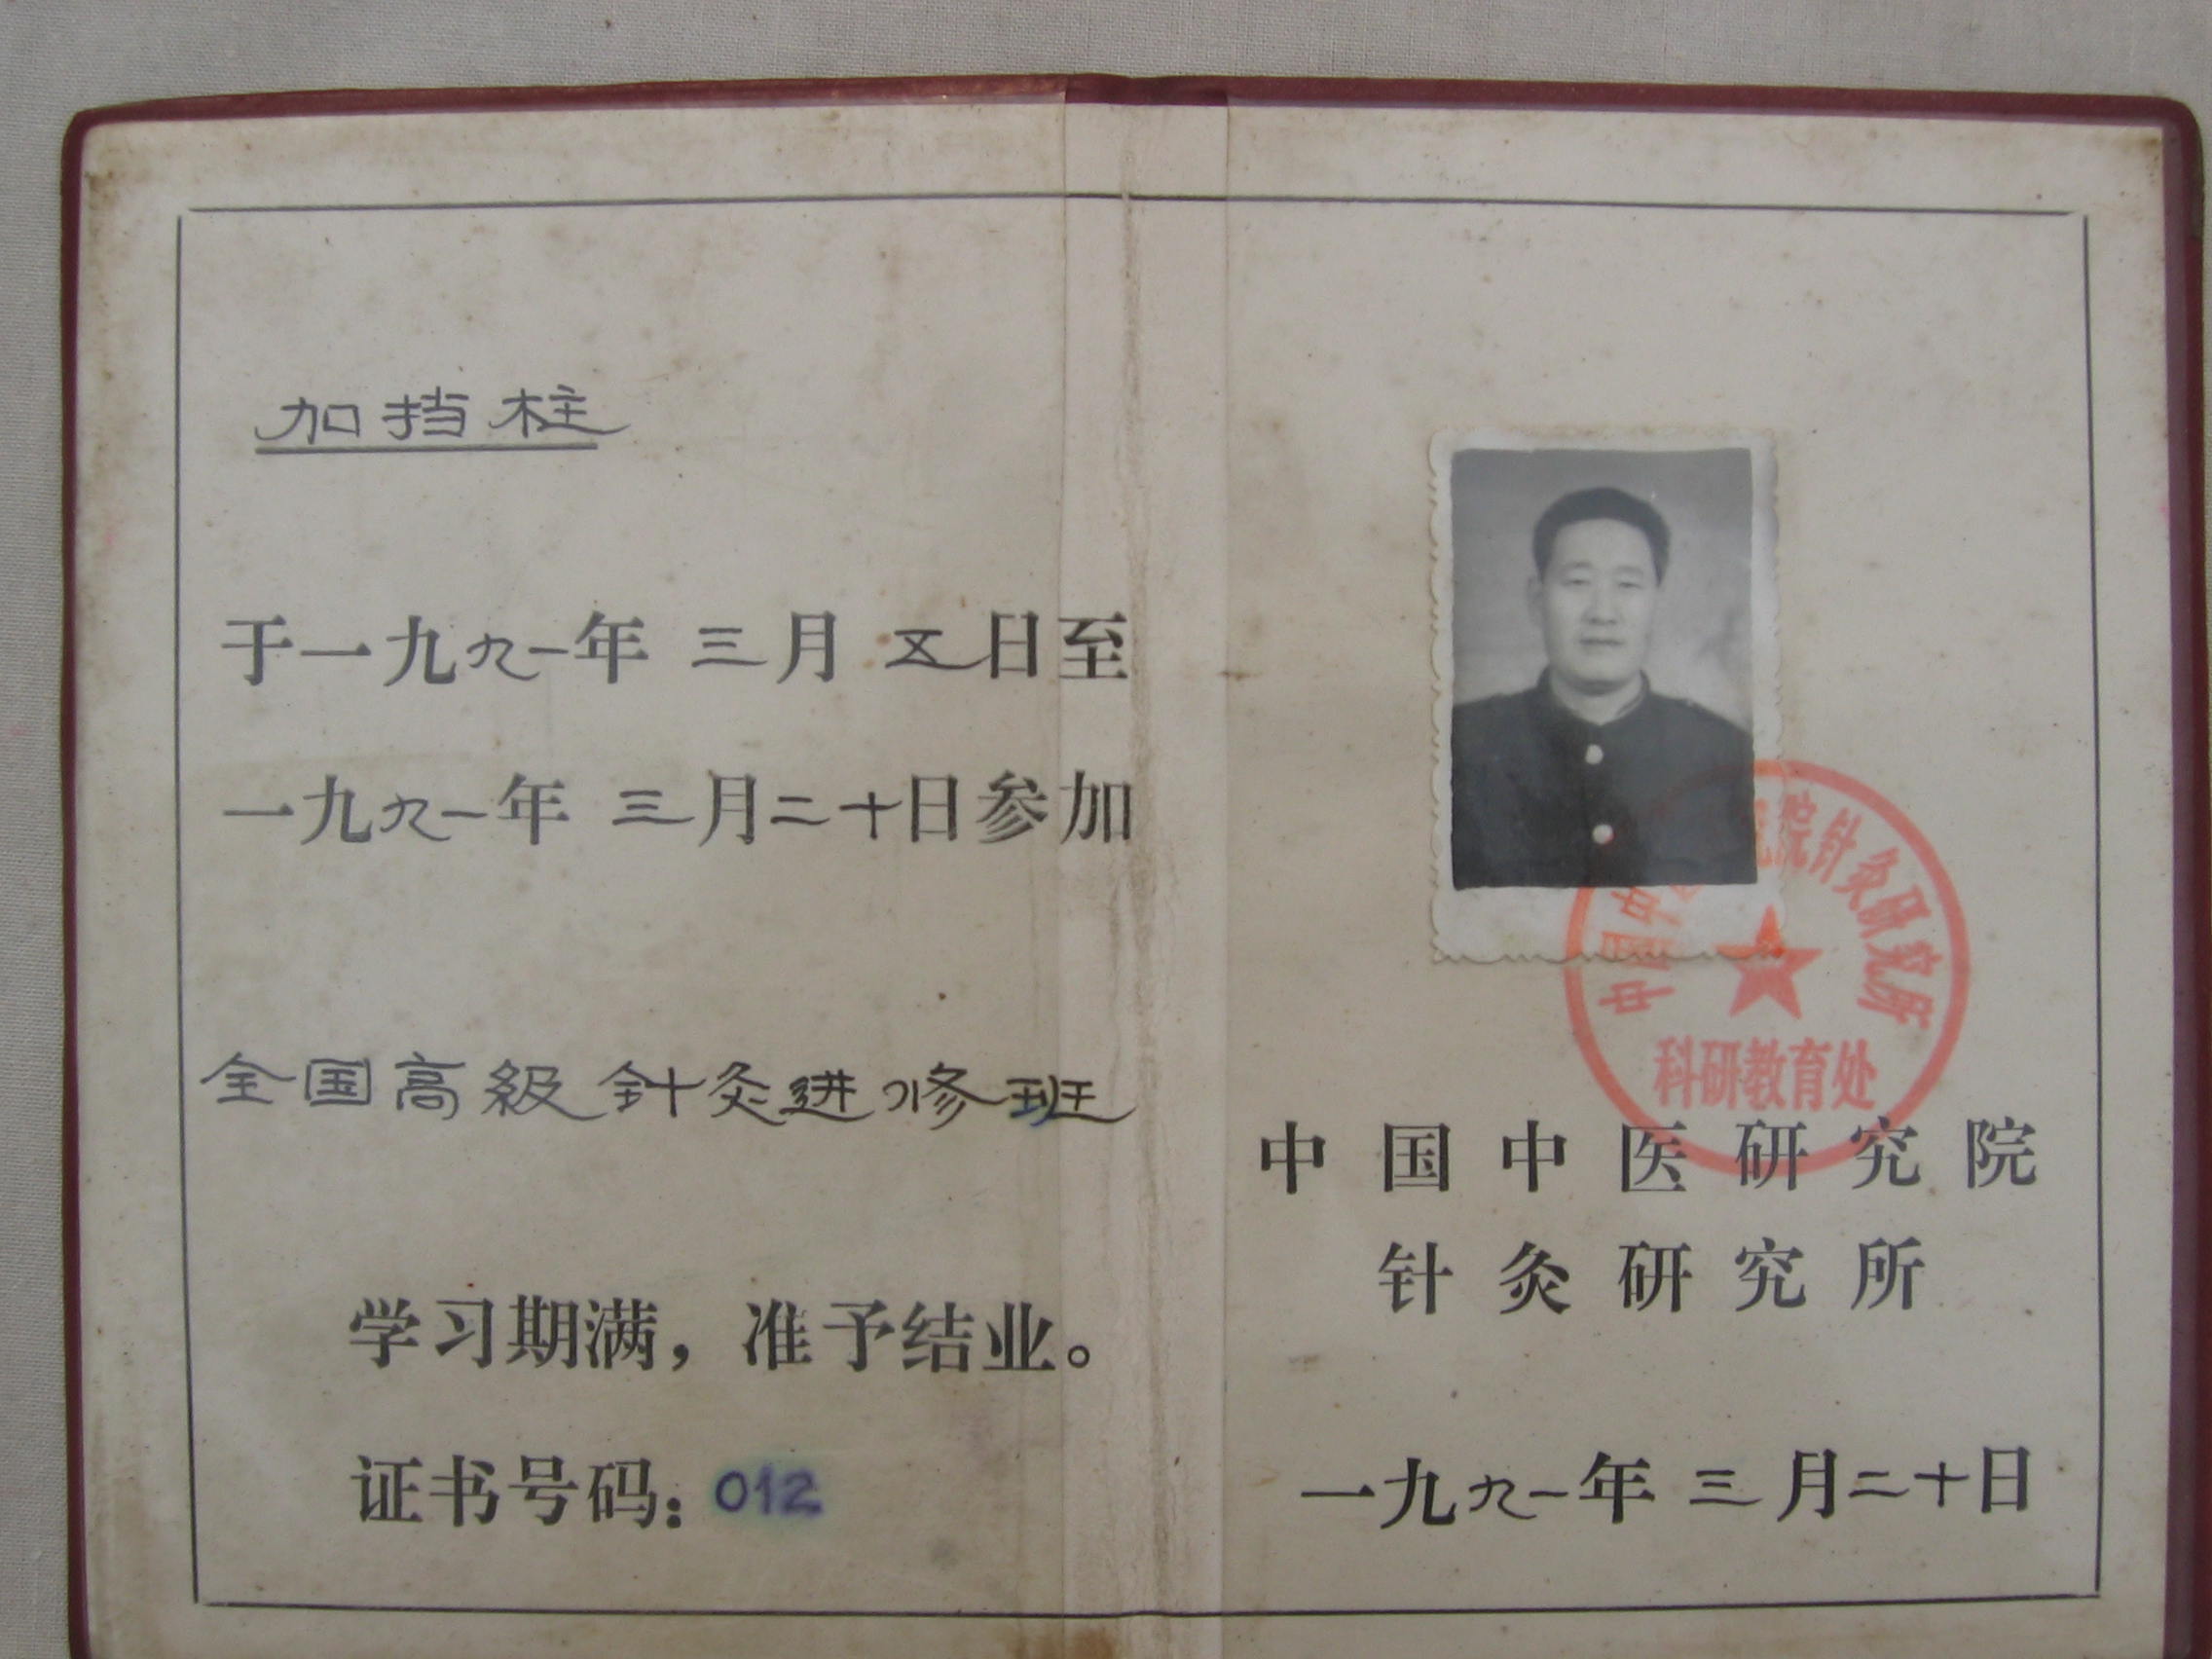 加挡柱
于一九九一年 三月 五日至
一九九一年 三月二十日参加
全国高級针灸进修班
学习期满，准予结业。
证书号码：012
院针灸研究所
科研教育处
中国中医研究院
针灸研究所
一九九一年 三月二十日